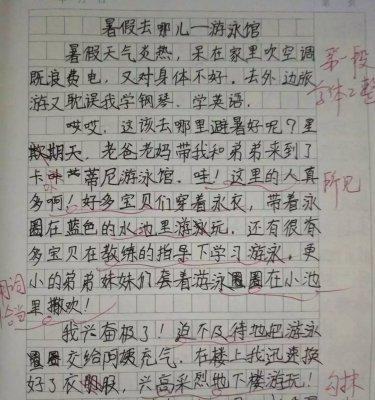 暑假去哪儿—游泳馆
暑假天气炎热，呆在家里吹空调
既浪费电，又对身体不好。去外边旅
游又耽误我学钢琴、学英语。
哎哎，这该去哪里避暑好呢？星
期天，老爸老妈带我和弟弟来到了
卡蒂尼游泳馆。哇！这里的人真
多啊！好多宝贝们穿着泳衣，带着泳
圈在蓝色的水池里游泳玩。还有很有
多宝贝在教练的指导下学习游泳，更
小的弟弟妹妹们套着游泳圈在小池
里撒欢！
我兴奋极了！迫不及待地把游泳
圈交给阿姨充气，在楼上我迅速换
好了衣服，兴高采烈地下楼游玩！
第一段
字体工整
所见
用词
恰当
勾抹